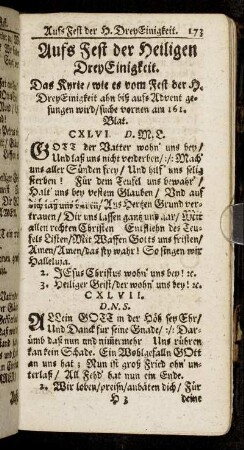 Aufs Fest der H. DreyEinigkeit. 173
Aufs Fest der Heiligen
DreyEinigkeit.
Das Kyrie/ wie es vom Fest der H.
DreyEinigkeit ahn biß aufs Advent ge-
sungen wird/ suche vornen am 161.
Blat.
CXLVI. D.M.L.
GOTT der Vatter wohn' uns bey/
Und laß uns nicht verderben/ :/: Mach'
uns aller Sünden frey/ Und hilf' uns selig
sterben! Für dem Teufel uns bewahr'/
Halt' uns bey vestem Glauben/ Und auf
Dich laß uns bauen/ Aus Hertzen Grund ver-
trauen/ Dir uns lassen gantz und gar/ Mitt
allen rechten Christen Entfliehn des Teu-
fels Listen/ Mit Waffen Gotts uns fristen/
Amen/ Amen/ das sey wahr! So singen wir
Halleluja.
2. JEsus Christus wohn' uns bey! ꝛc.
3. Heiliger Geist/ der wohn' uns bey! ꝛc.
CXLVII.
D.N.S.
ALlein GOTT in der Höh sey Ehr/
Und Danck für seine Gnade/ :/: Dar-
ümb daß nun und nimmermehr Uns rühren
kan kein Schade. Ein Wohlgefalln GOtt
an uns hat; Nun ist groß Fried ohn' un-
terlaß/ All Fehd' hat nun ein Ende.
2. Wir loben/ preisn/ anbäten dich/ Für
H 3 deine